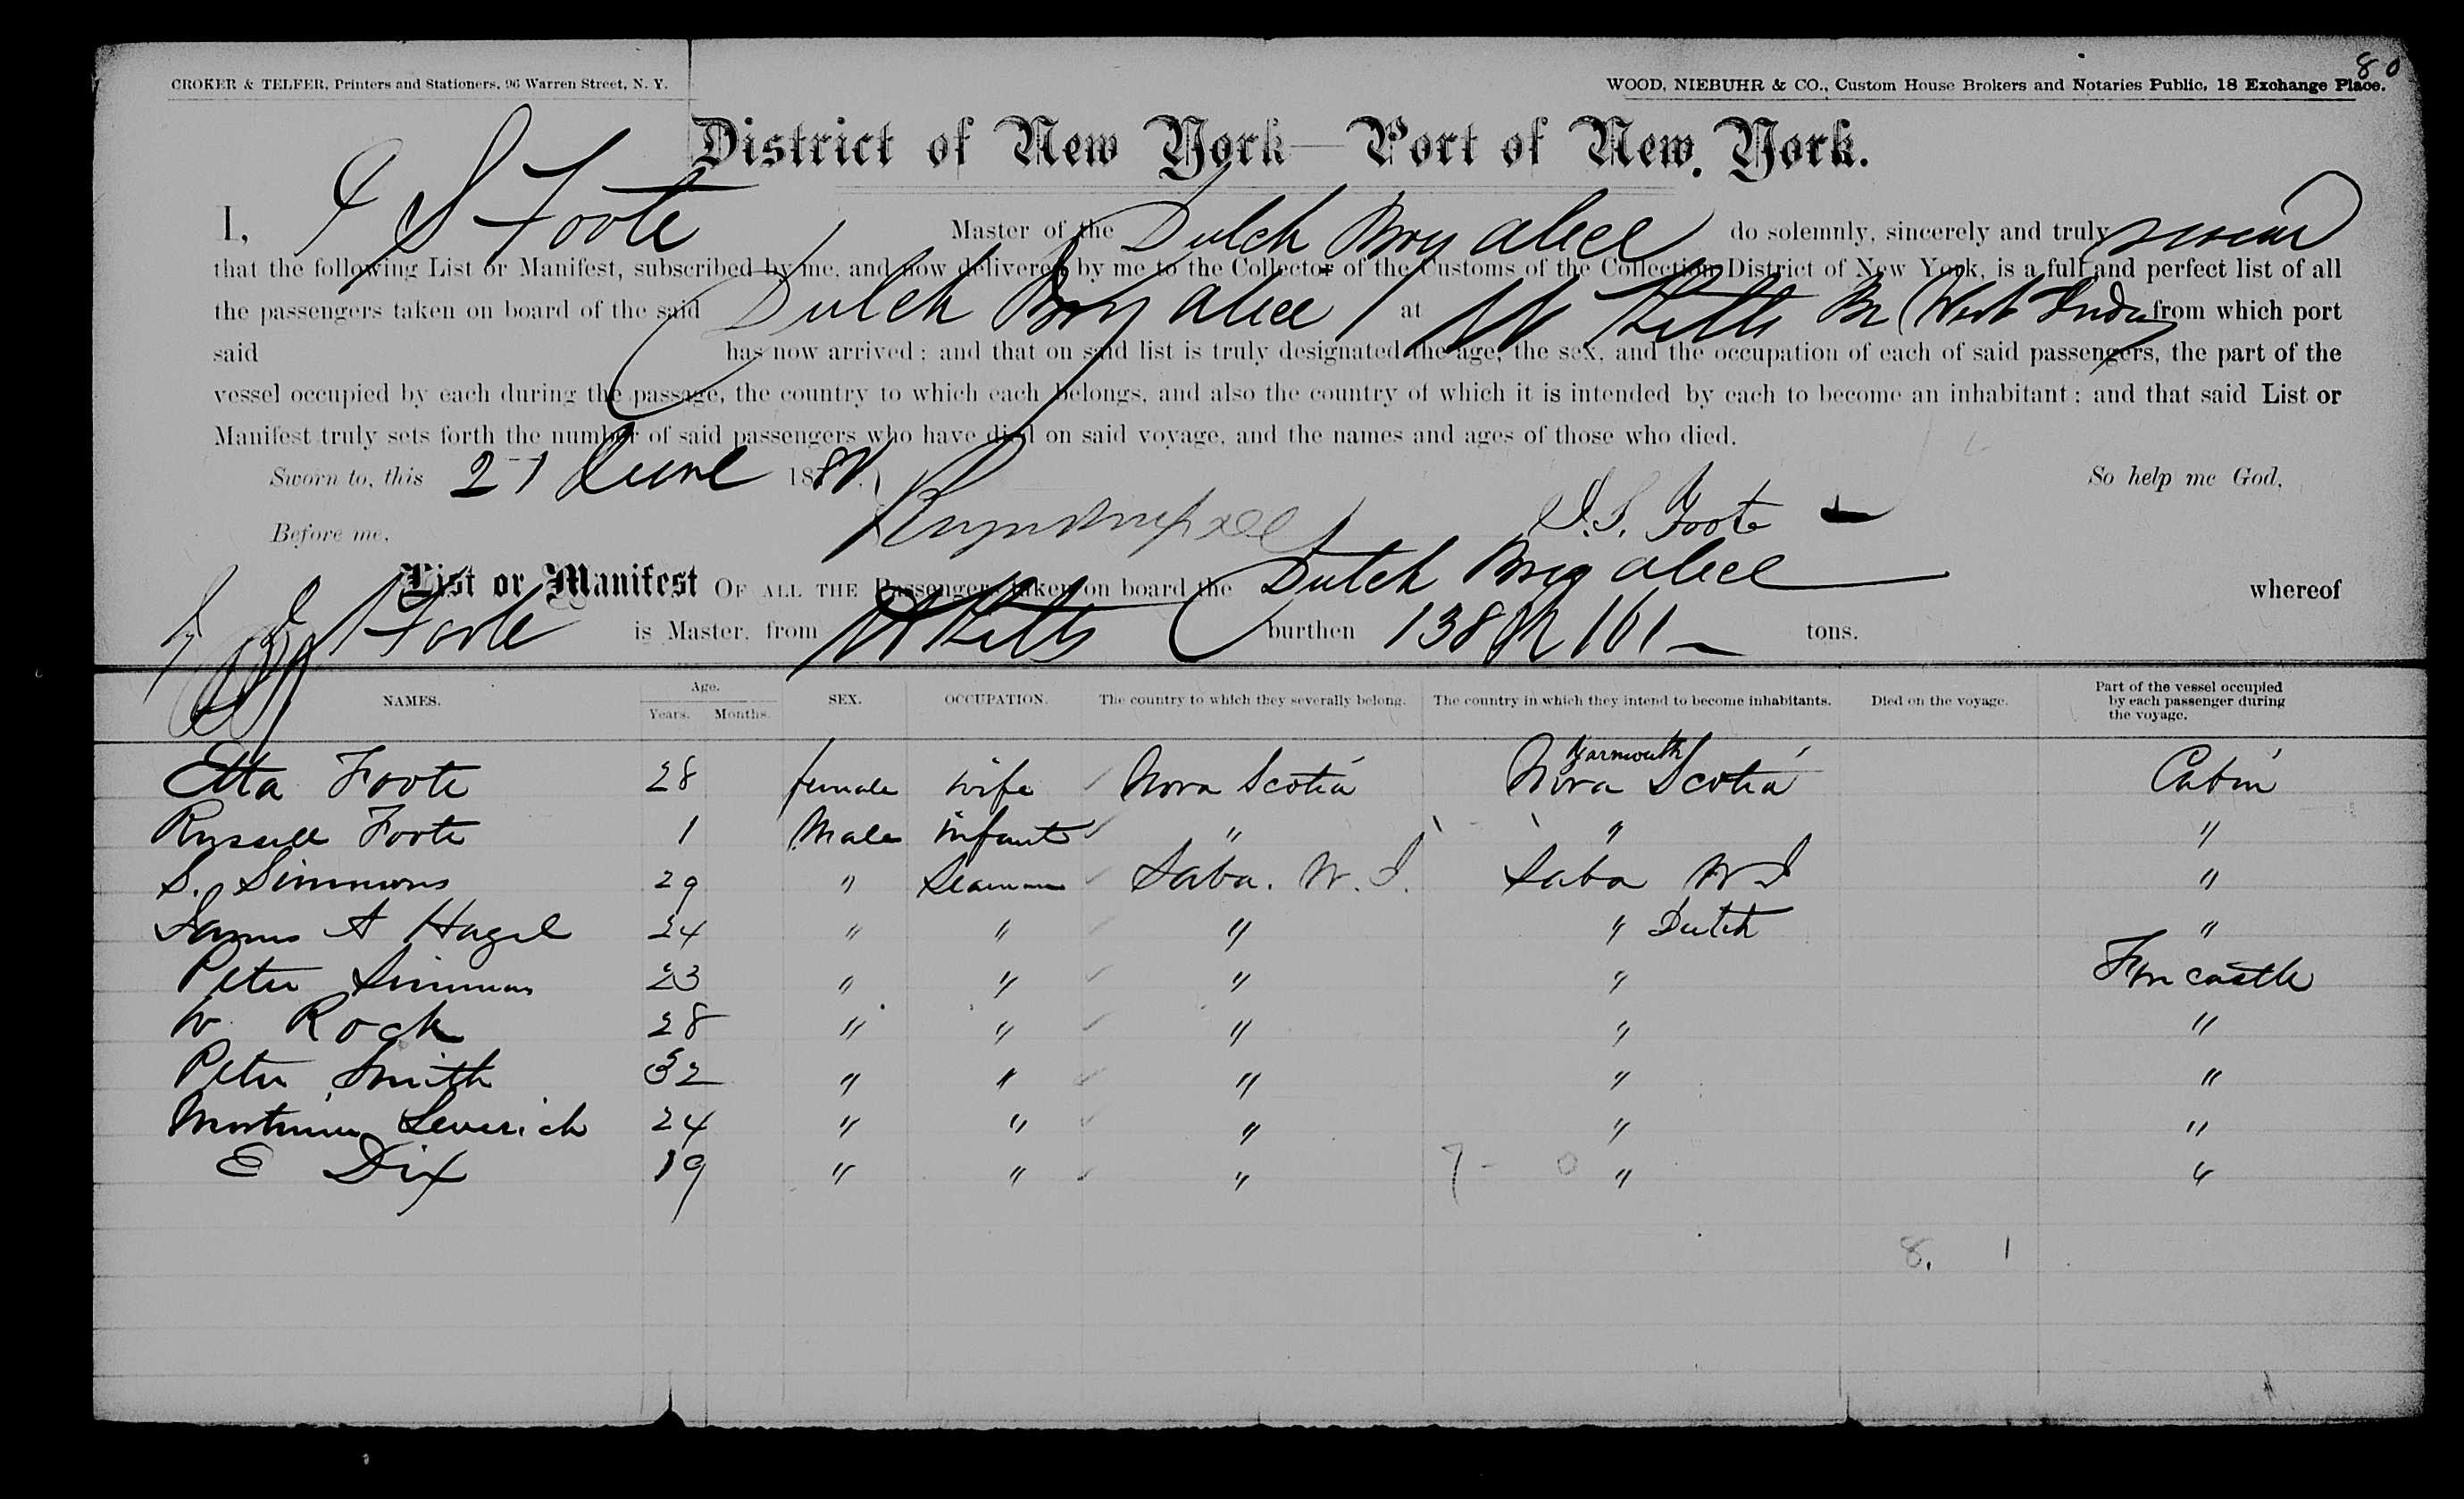 80
CROKER & TELFER, Printers and Stationers, 96 Warren Street, N. Y.
WOOD, NIEBUHR & CO., Custom House Brokers and Notaries Public, 18 Exchange Place.
District of New York—Port of New York.
I, J S Foote Master of the Dutch Brig Alice do solemnly, sincerely and truly swear
that the following List or Manifest, subscribed by me, and now delivered by me to the Collector of the Customs of the Collection District of New York, is a full and perfect list of all
the passengers taken on board of the said Dutch Brig Alice at St Kitts Br West Indies from which port
said has now arrived; and that on said list is truly designated the age, the sex, and the occupation of each of said passengers, the part of the
vessel occupied by each during the passage, the country to which each belongs, and also the country of which it is intended by each to become an inhabitant; and that said List or
Manifest truly sets forth the number of said passengers who have died on said voyage, and the names and ages of those who died.
Sworn to, this 21 June 188 So help me God,
Before me, J. S. Foote
List or Manifest OF ALL THE Passengers taken on board the Dutch Brig Alice whereof
J S Foote is Master, from St Kitts burthen 138 161 tons.
NAMES. Age. Years. Months. SEX. OCCUPATION. The country to which they severally belong. The country in which they intend to become inhabitants. Died on the voyage. Part of the vessel occupied by each passenger during the voyage.
Yarmouth
Etta Foote 28 female wife Nova Scotia Nova Scotia Cabin
Russell Foote 1 Male infant " " "
S. Simmons 29 " Seaman Saba. W. I. Saba W I "
James A Hagel 24 " " " " Dutch "
Peter Simmons 23 " " " " Forcastle
W Rock 28 " " " " "
Peter Smith 32 " " " " "
Mortimer Leverich 24 " " " " "
E Dix 19 " " " 7 - 0 " "
8. 1